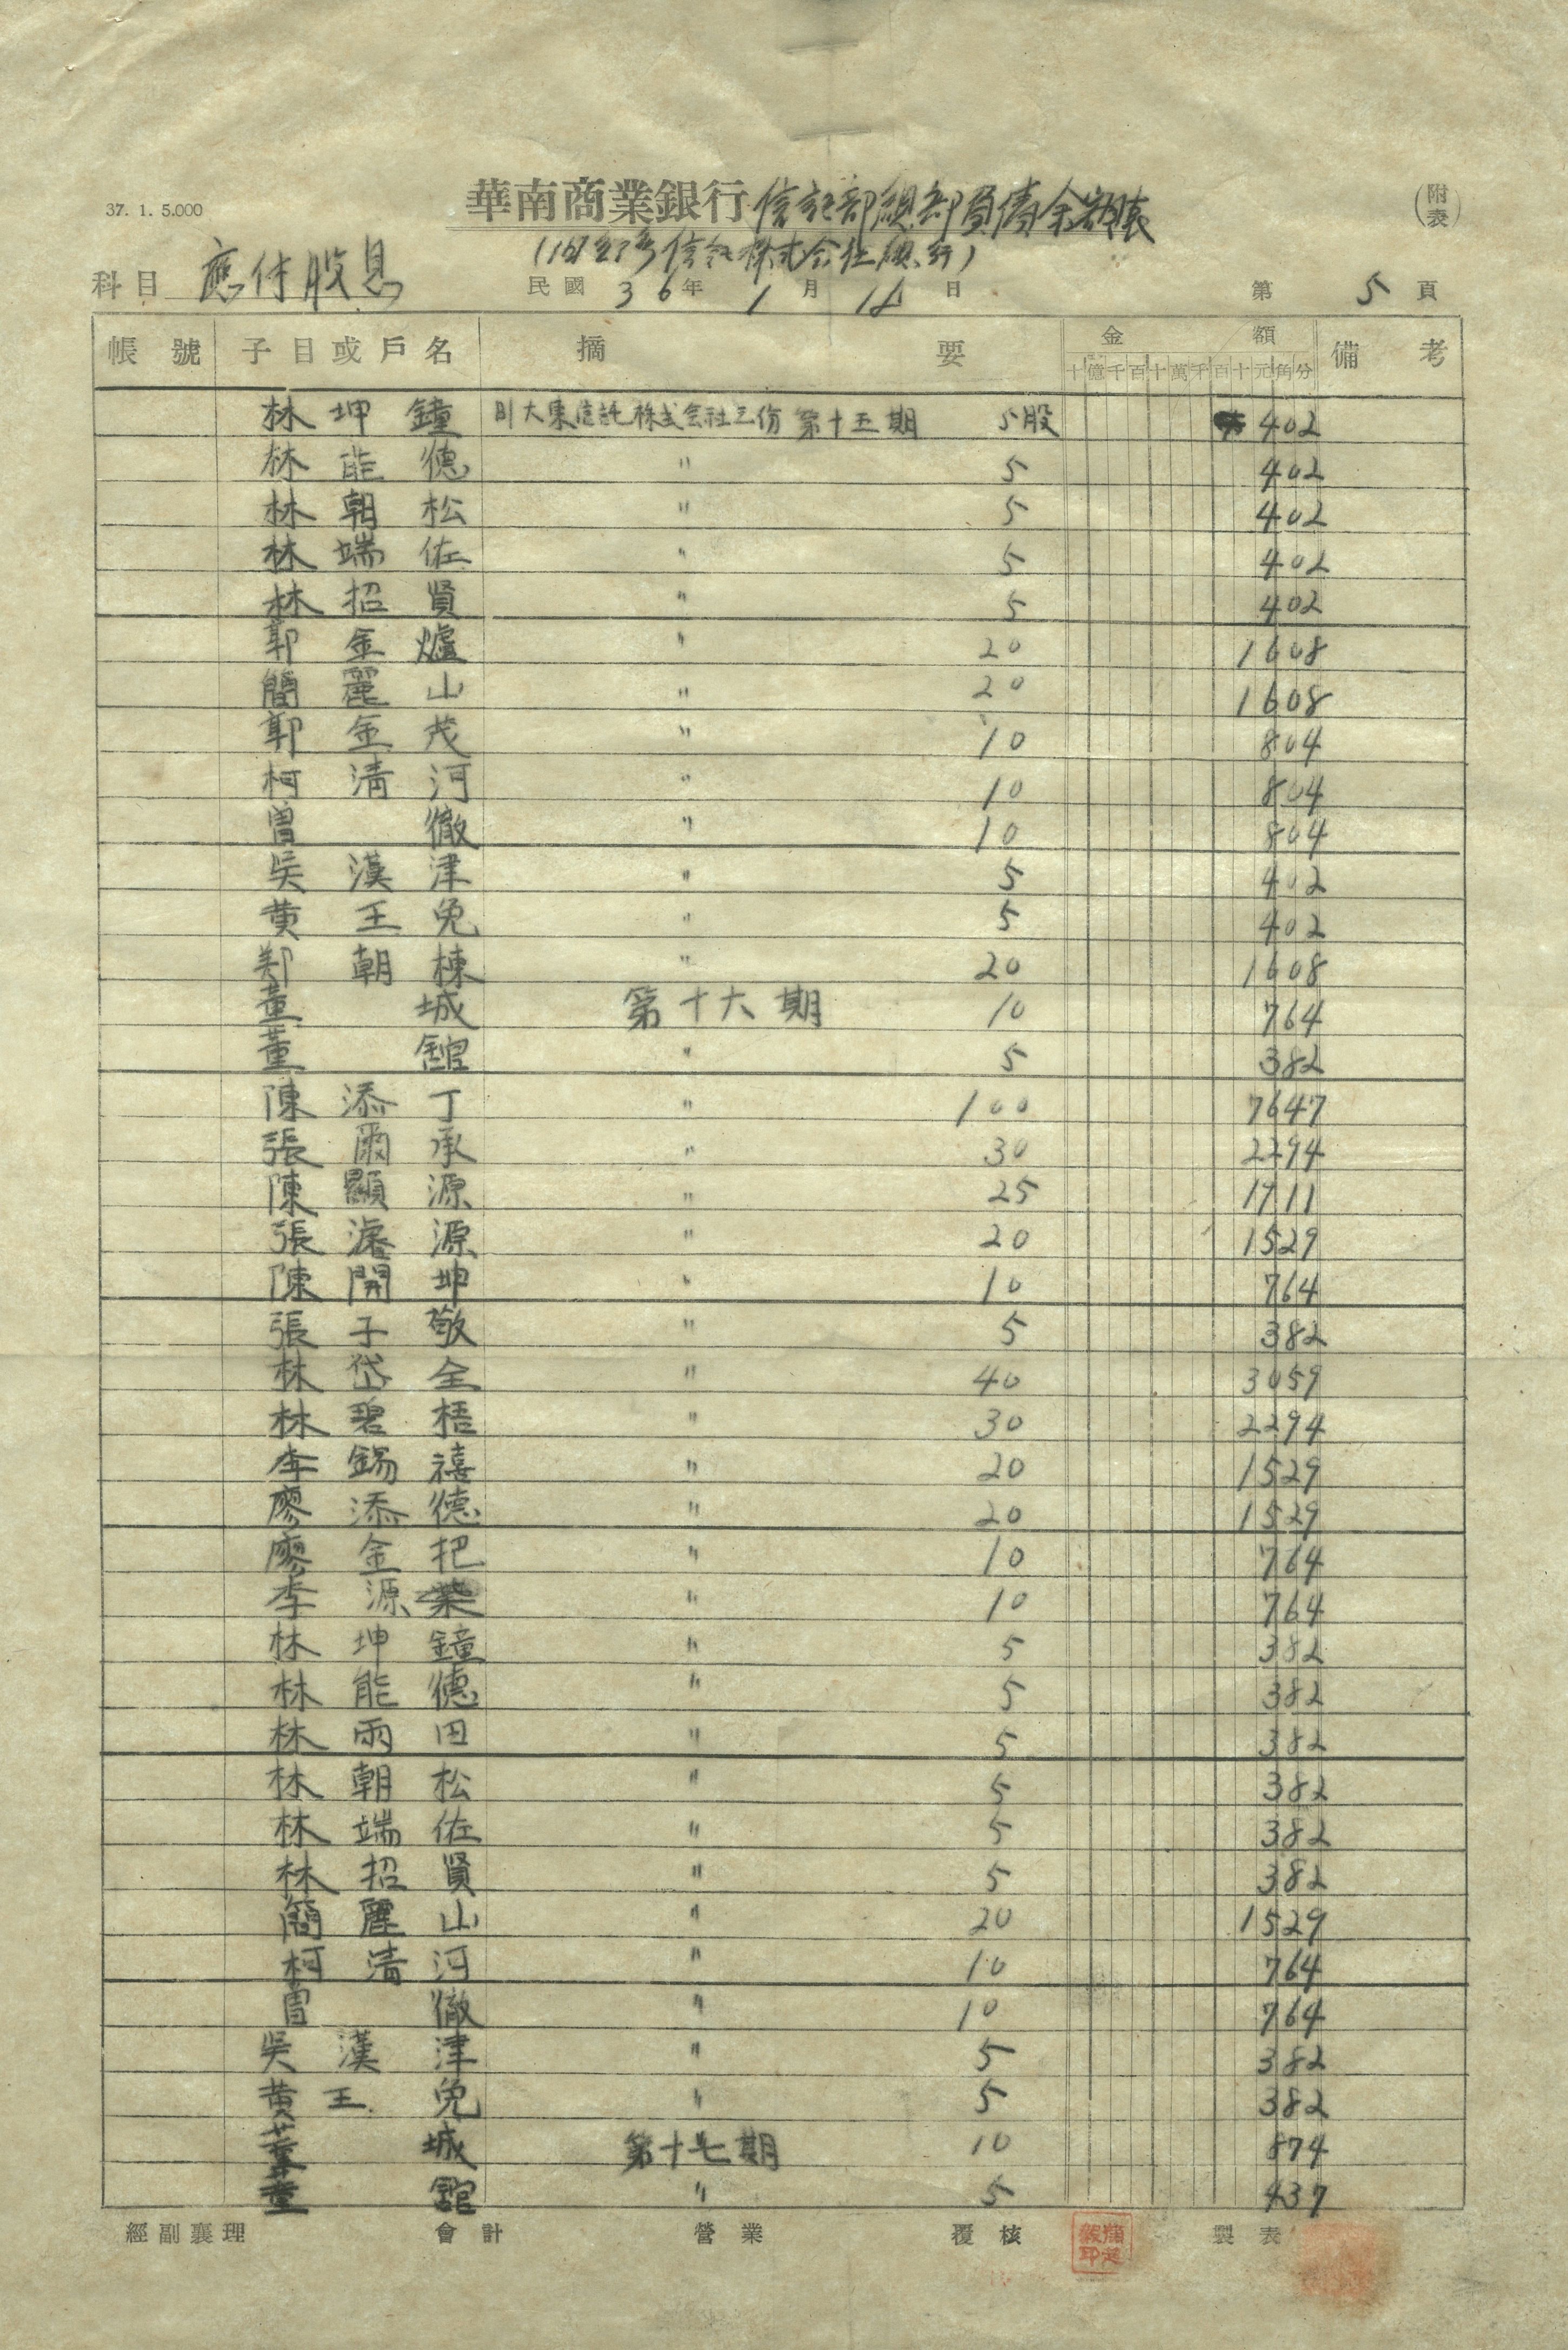 37. 1. 5.000
華南商業銀行 信託部總部負債余額表
(附表)
株式会社
科目 應付股息 民國 36年 1月 日 第 5 頁
帳號 子目或戶名 摘要 金額 備考
十億千百十萬千百十元角分
林坤鐘 旧大東信託株式会社 第十五期 5股 402
林能德 〃 5 402
林朝松 〃 5 402
林端佐 〃 5 402
林招賢 〃 5 402
郭金爐 〃 20 1608
簡麗山 〃 20 1608
郭金茂 〃 10 804
柯清河 〃 10 804
曾徹 〃 10 804
吳漢津 〃 5 402
黄王兔 〃 5 402
郑朝棟 〃 20 1608
董城 第十六期 10 764
董舘 〃 5 382
陳添丁 〃 100 7647
張爾承 〃 30 2294
陳顯源 〃 25 1711
張濬源 〃 20 1529
陳開坤 〃 10 764
張子敬 〃 5 382
林岱全 〃 40 3059
林碧梧 〃 30 2294
李錫禧 〃 20 1529
廖添德 〃 20 1529
廖金把 〃 10 764
李源 〃 10 764
林坤鐘 〃 5 382
林能德 〃 5 382
林雨田 〃 5 382
林朝松 〃 5 382
林端佐 〃 5 382
林招賢 〃 5 382
簡麗山 〃 20 1529
柯清河 〃 10 764
曾徹 〃 10 764
吳漢津 〃 5 382
黄王兔 〃 5 382
董城 第十七期 10 874
董舘 〃 5 437
經副襄理 會計 營業 覆核 製表